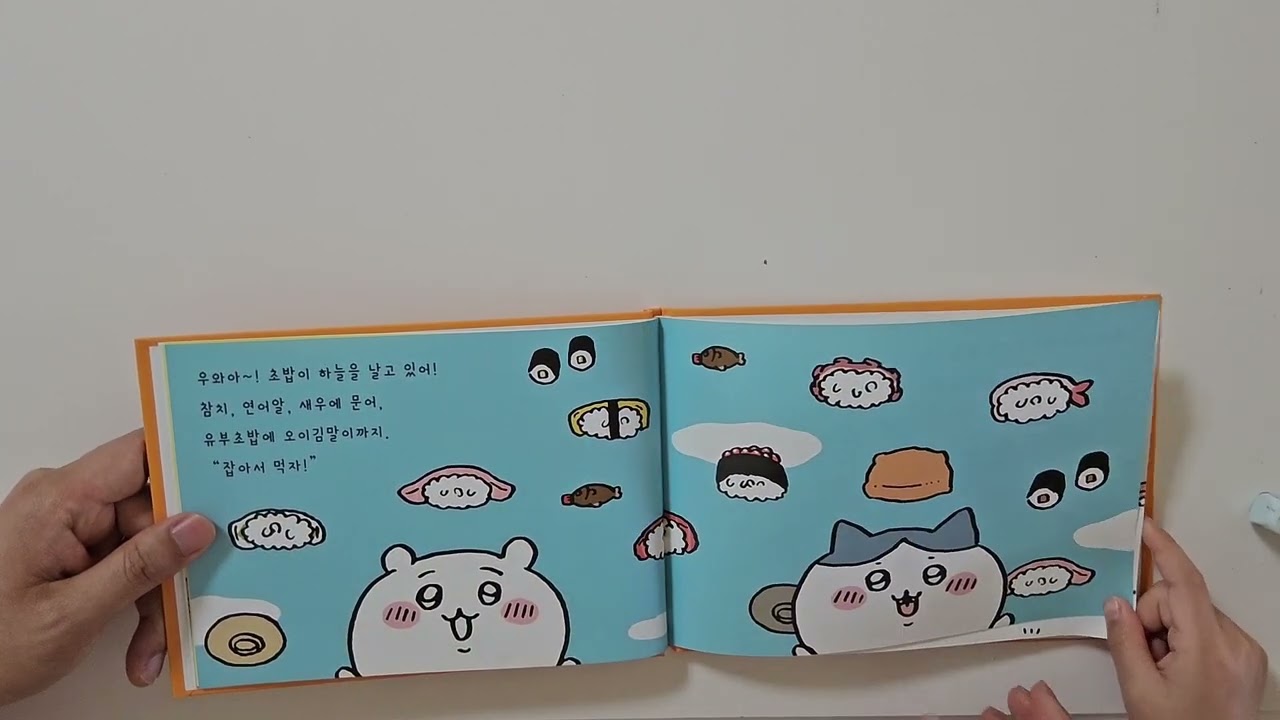 우와아~! 초밥이 하늘을 날고 있어!
참치, 연어알, 새우에 문어,
유부초밥에 오이김말이까지.
“잡아서 먹자!”